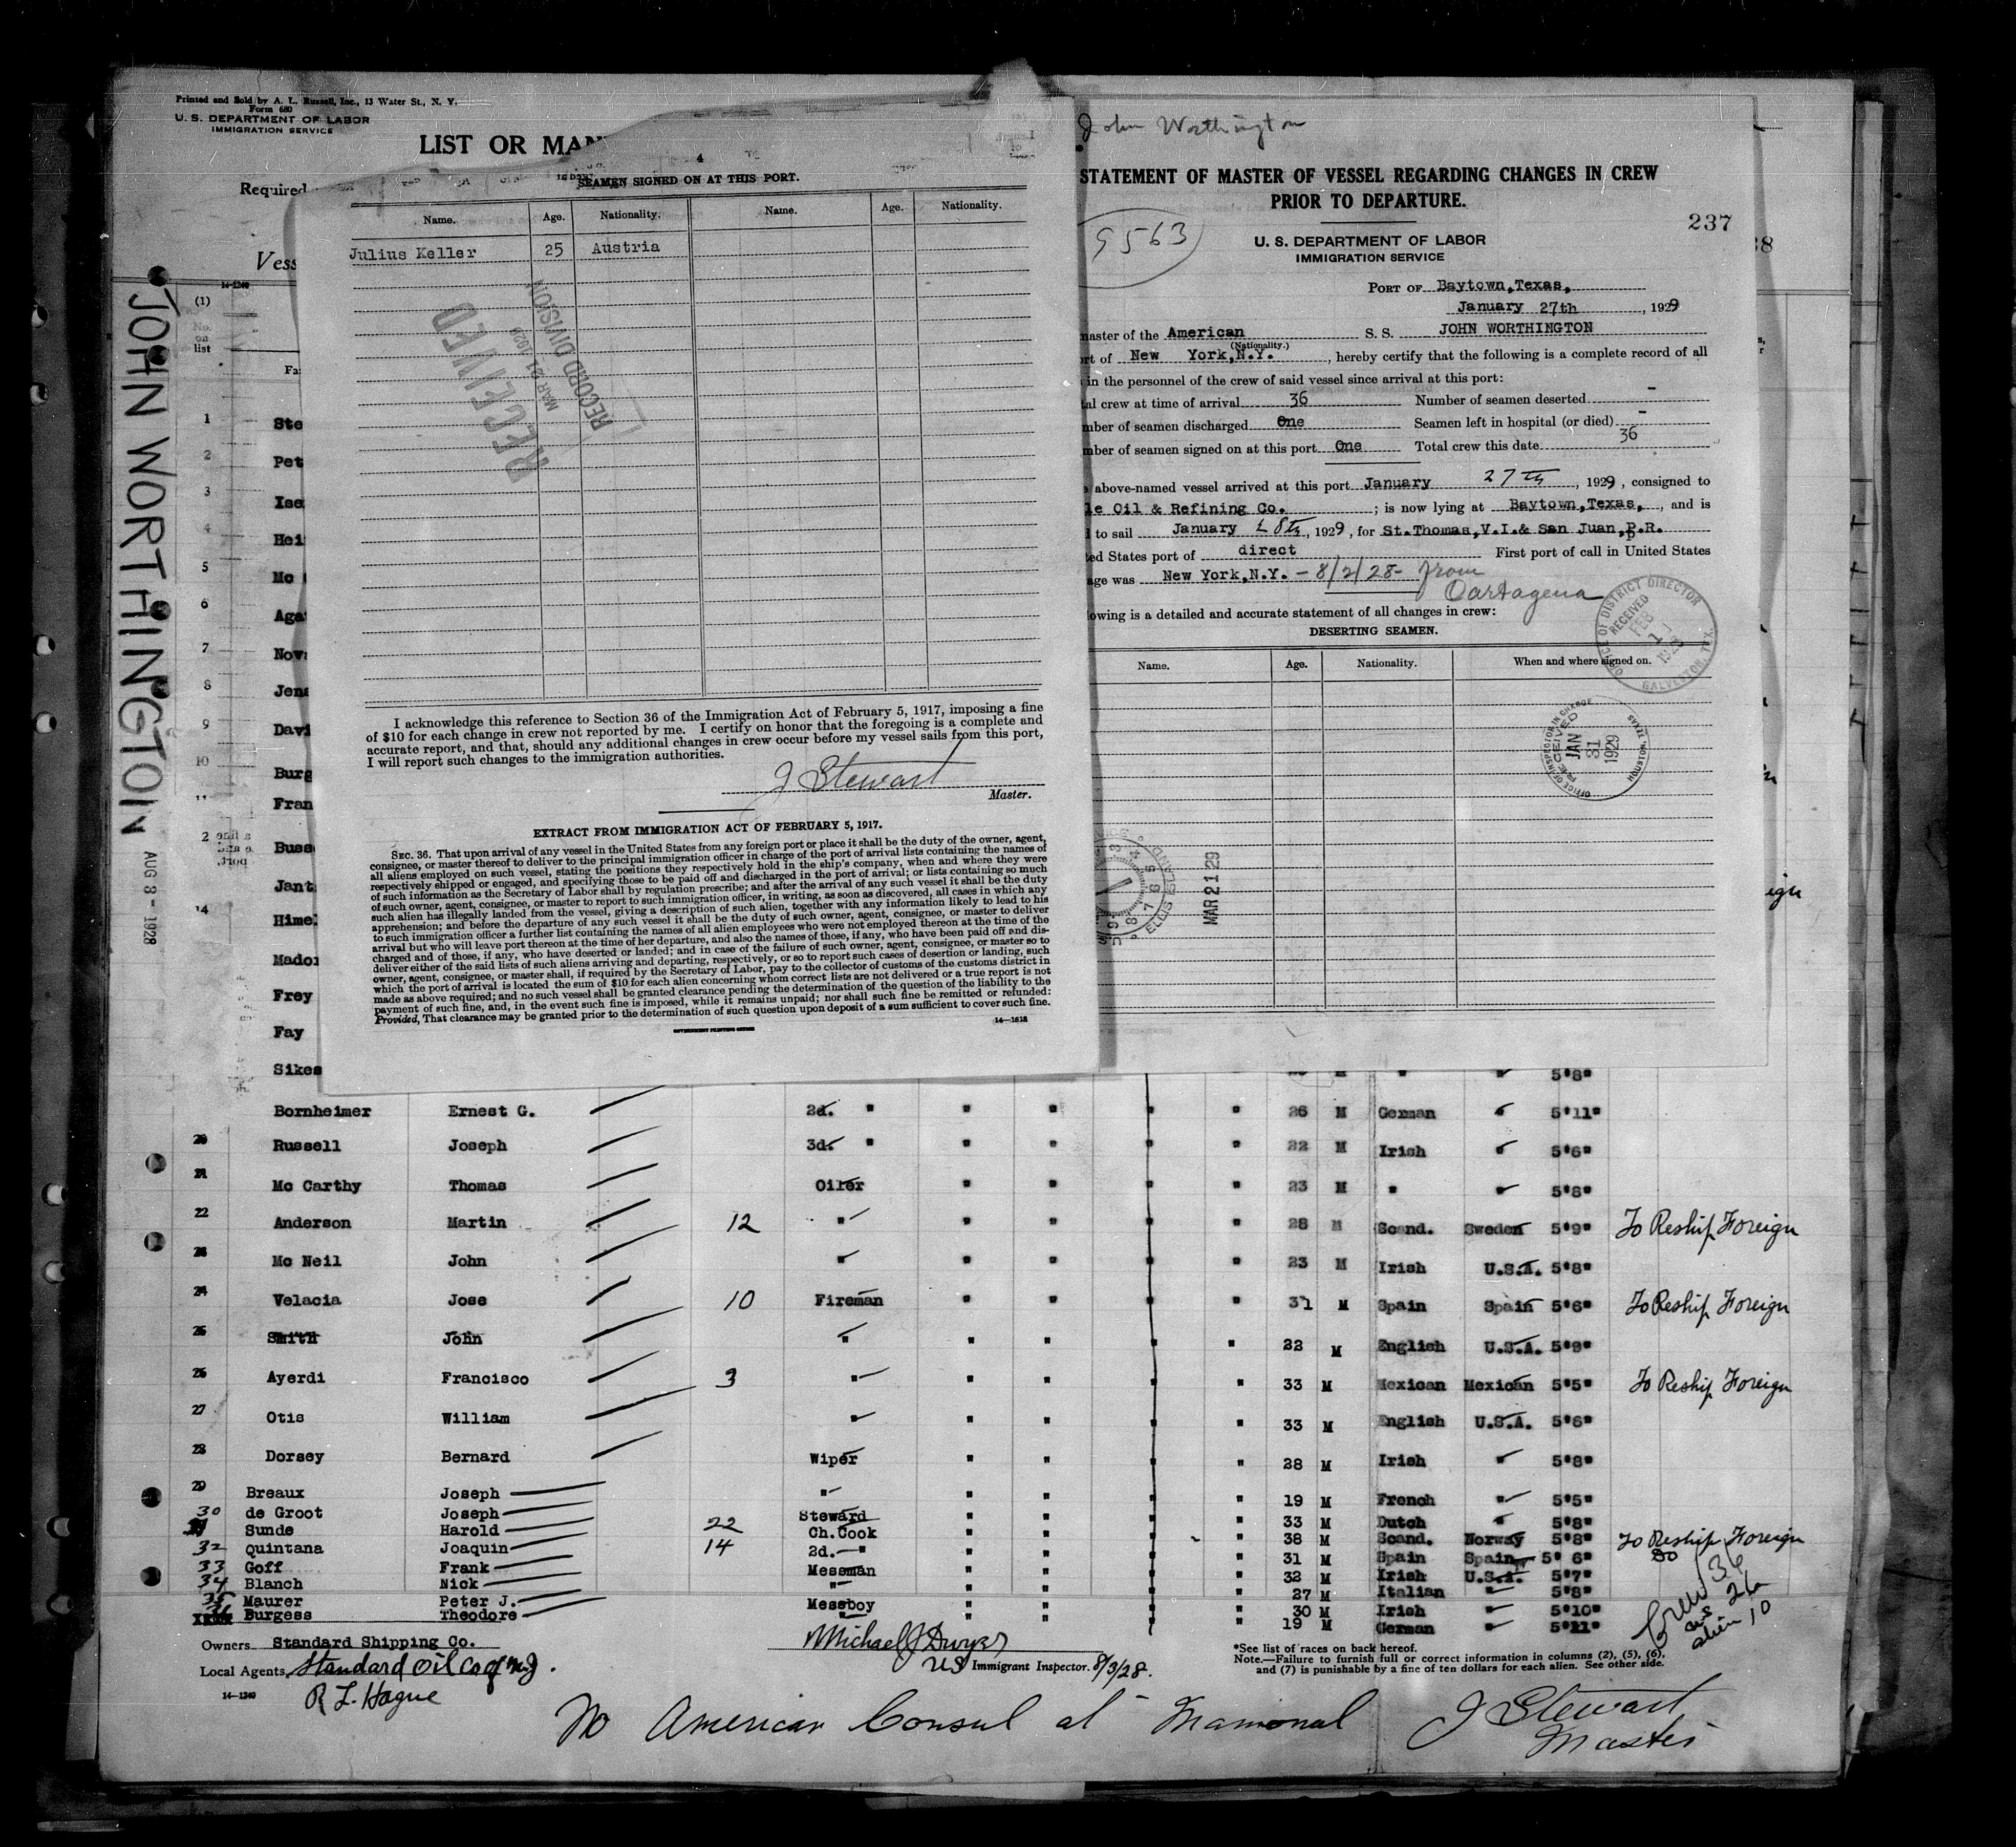 Printed and Sold by A. L. Russell, Inc., 13 Water St., N. Y.
Form 680
U. S. DEPARTMENT OF LABOR
IMMIGRATION SERVICE
LIST OR MAN
Required
Vess
14-1240
(1)
No.
on
list
Fa
JOHN WORTHINGTON
AUG 3 - 1928
1 Ste
2 Pet
3 Ise
4 Hei
5 Mc
6 Aga
7 Nov
8 Jena
9 Davi
10 Burg
11 Fran
2 Buss
Jant
14 Hime
Mador
Frey
Fay
Sikes
4
SEAMEN SIGNED ON AT THIS PORT.
Name. Age. Nationality. Name. Age. Nationality.
Julius Keller 25 Austria
RECEIVED
MAR 21 1929
RECORD DIVISION
I acknowledge this reference to Section 36 of the Immigration Act of February 5, 1917, imposing a fine
of $10 for each change in crew not reported by me. I certify on honor that the foregoing is a complete and
accurate report, and that, should any additional changes in crew occur before my vessel sails from this port,
I will report such changes to the immigration authorities.
J Stewart
Master.
EXTRACT FROM IMMIGRATION ACT OF FEBRUARY 5, 1917.
SEC. 36. That upon arrival of any vessel in the United States from any foreign port or place it shall be the duty of the owner, agent,
consignee, or master thereof to deliver to the principal immigration officer in charge of the port of arrival lists containing the names of
all aliens employed on such vessel, stating the positions they respectively hold in the ship's company, when and where they were
respectively shipped or engaged, and specifying those to be paid off and discharged in the port of arrival; or lists containing so much
of such information as the Secretary of Labor shall by regulation prescribe; and after the arrival of any such vessel it shall be the duty
of such owner, agent, consignee, or master to report to such immigration officer, in writing, as soon as discovered, all cases in which any
such alien has illegally landed from the vessel, giving a description of such alien, together with any information likely to lead to his
apprehension; and before the departure of any such vessel it shall be the duty of such owner, agent, consignee, or master to deliver
to such immigration officer a further list containing the names of all alien employees who were not employed thereon at the time of the
arrival but who will leave port thereon at the time of her departure, and also the names of those, if any, who have been paid off and dis-
charged and of those, if any, who have deserted or landed; and in case of the failure of such owner, agent, consignee, or master so to
deliver either of the said lists of such aliens arriving and departing, respectively, or so to report such cases of desertion or landing, such
owner, agent, consignee, or master shall, if required by the Secretary of Labor, pay to the collector of customs of the customs district in
which the port of arrival is located the sum of $10 for each alien concerning whom correct lists are not delivered or a true report is not
made as above required; and no such vessel shall be granted clearance pending the determination of the question of the liability to the
payment of such fine, and, in the event such fine is imposed, while it remains unpaid; nor shall such fine be remitted or refunded:
Provided, That clearance may be granted prior to the determination of such question upon deposit of a sum sufficient to cover such fine.
GOVERNMENT PRINTING OFFICE 14-1618
John Worthington
STATEMENT OF MASTER OF VESSEL REGARDING CHANGES IN CREW
PRIOR TO DEPARTURE.
237
9563
U. S. DEPARTMENT OF LABOR
IMMIGRATION SERVICE
PORT OF Baytown, Texas,
January 27th, 1929
master of the American S. S. JOHN WORTHINGTON
(Nationality.)
rt of New York, N.Y., hereby certify that the following is a complete record of all
in the personnel of the crew of said vessel since arrival at this port:
al crew at time of arrival 36 Number of seamen deserted -
mber of seamen discharged One Seamen left in hospital (or died) -
mber of seamen signed on at this port One Total crew this date 36
above-named vessel arrived at this port January 27th, 1929, consigned to
le Oil & Refining Co. ; is now lying at Baytown, Texas, and is
to sail January 28th, 1929, for St.Thomas, V.I.& San Juan, P.R.
ed States port of direct First port of call in United States
age was New York, N.Y. - 8/2/28 - from
Cartagena
owing is a detailed and accurate statement of all changes in crew:
DESERTING SEAMEN.
Name. Age. Nationality. When and where signed on.
OFFICE OF DISTRICT DIRECTOR
RECEIVED
FEB 1 1929
GALVESTON, TEX.
OFFICE OF INSPECTOR IN CHARGE
RECEIVED
JAN 31 1929
HOUSTON, TEXAS
ELLIS ISLAND
MAR 21 29
38
ign
" 5'8"
Bornheimer Ernest G. 2d. " " " " " 26 M German " 5'11"
20 Russell Joseph 3d. " " " " " 22 M Irish " 5'6"
21 Mc Carthy Thomas Oiler " " " " 23 M " " 5'8"
22 Anderson Martin 12 " " " " " 28 M Scand. Sweden 5'9" To Reship Foreign
23 Mc Neil John " " " " " 23 M Irish U.S.A. 5'8"
24 Velacia Jose 10 Fireman " " " " 31 M Spain Spain 5'6" To Reship Foreign
25 Smith John " " " " " 22 M English U.S.A. 5'9"
26 Ayerdi Francisco 3 " " " " " 33 M Mexican Mexican 5'5" To Reship Foreign
27 Otis William " " " " " 33 M English U.S.A. 5'6"
28 Dorsey Bernard Wiper " " " " 28 M Irish " 5'8"
29 Breaux Joseph " " " " " 19 M French " 5'5"
30 de Groot Joseph Steward " " " " 33 M Dutch " 5'8"
31 Sunde Harold 22 Ch.Cook " " " " 38 M Scand. Norway 5'8" To Reship Foreign
32 Quintana Joaquin 14 2d. " " " " " 31 M Spain Spain 5' 6" Do
33 Goff Frank Messman " " " " 32 M Irish U.S.A. 5'7"
34 Blanch Nick " " " " " 27 M Italian " 5'8"
35 Maurer Peter J. Messboy " " " " 30 M Irish " 5'10"
36 Burgess Theodore " " " " " 19 M German " 5'11"
Crew 36
us 26
alien 10
Owners Standard Shipping Co.
Local Agents Standard Oil Co of N.J.
R L. Hague
14-1240
Michael J Dwyer
US Immigrant Inspector. 8/3/28.
*See list of races on back hereof.
Note.—Failure to furnish full or correct information in columns (2), (5), (6),
and (7) is punishable by a fine of ten dollars for each alien. See other side.
No American Consul at Mamonal
J Stewart
Master